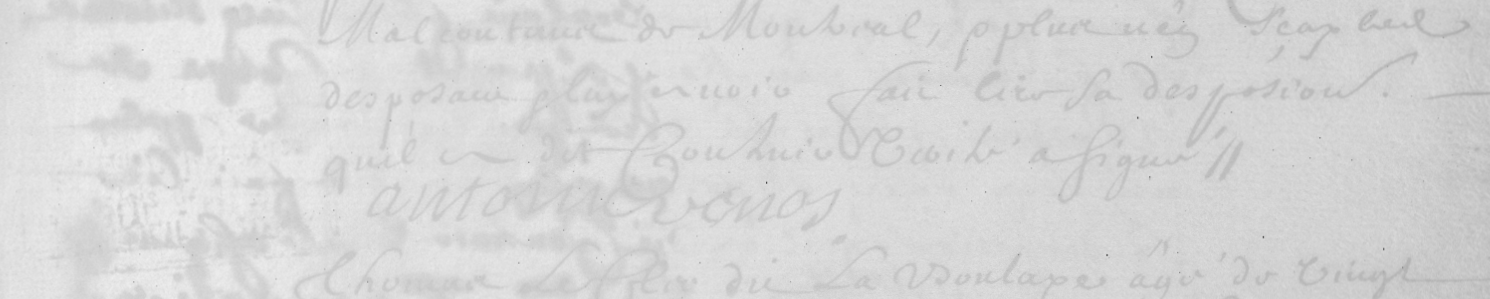 Malcontant de Montreal, p plus n'en Scay led
desposant plus ennoir fait lire sa desposion.
quil a dit Contenir verité a signé //
antoine venos
Thomas Le dit La age de vingt